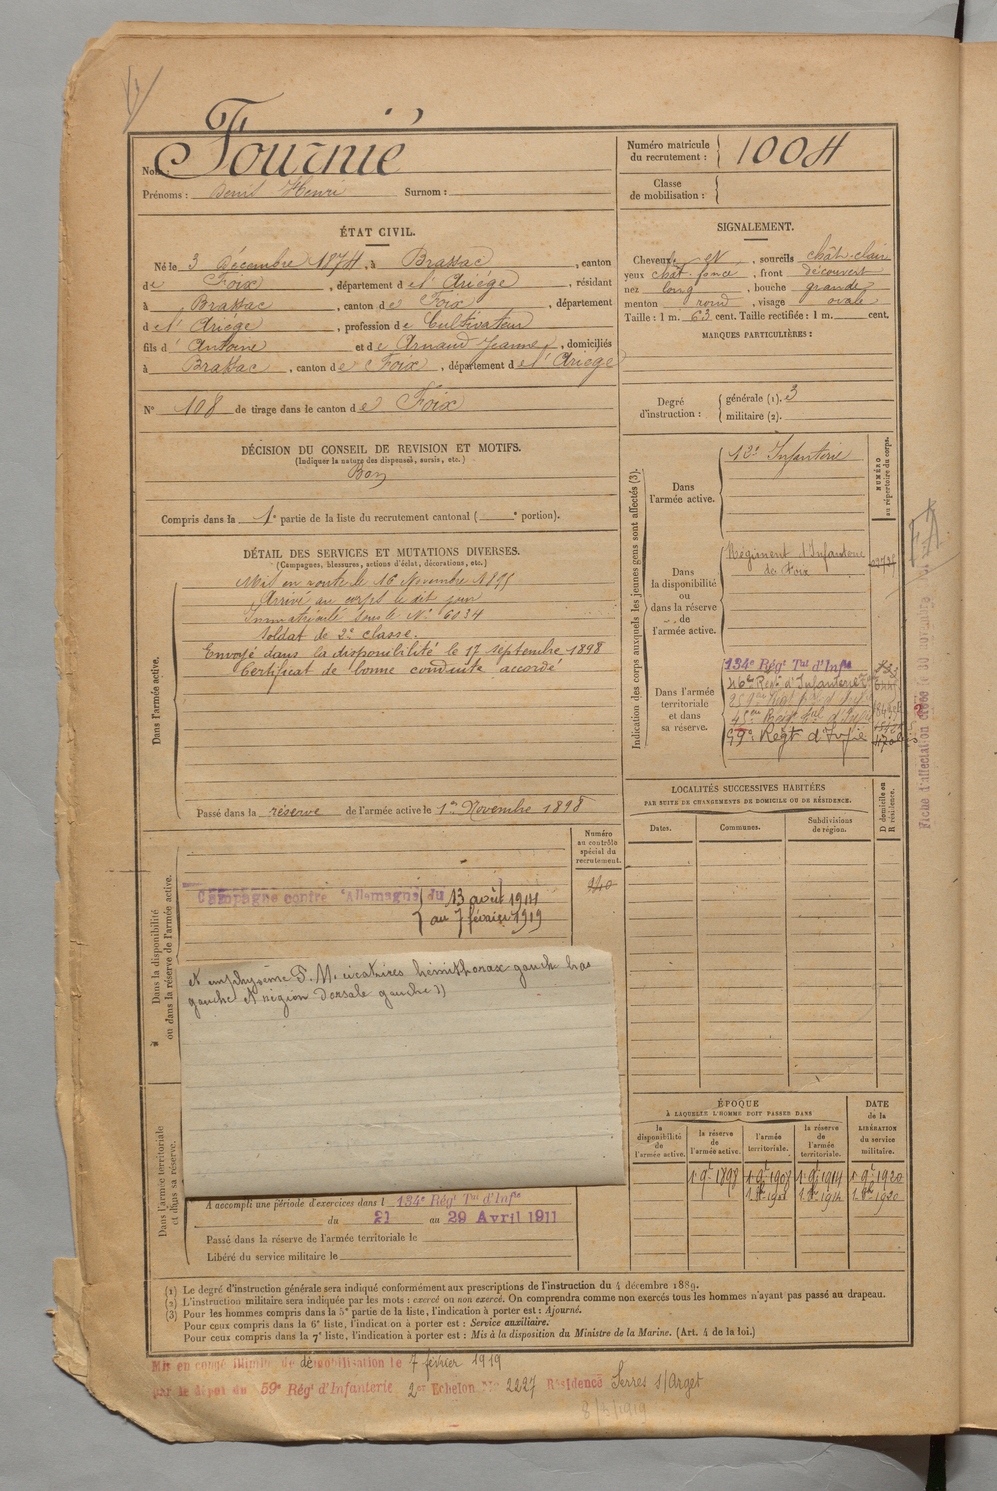 Fournié
Nom :
Prénoms : Denis Henri Surnom :
Numéro matricule du recrutement : 1004
Classe de mobilisation :
ÉTAT CIVIL.
Né le 3 Décembre 1874, à Brassac, canton
de Foix, département de l'Ariège, résidant
à Brassac, canton de Foix, département
de l'Ariège, profession de Cultivateur
fils d' Antoine et de Arnaud Jeanne, domiciliés
à Brassac, canton de Foix, département de l'Ariège
N° 108 de tirage dans le canton de Foix
SIGNALEMENT.
Cheveux et, sourcils chât-clair
yeux chât-foncé, front découvert
nez long, bouche grande
menton rond, visage ovale
Taille : 1 m. 63 cent. Taille rectifiée : 1 m. cent.
MARQUES PARTICULIÈRES :
Degré d'instruction : générale (1). 3
militaire (2).
DÉCISION DU CONSEIL DE REVISION ET MOTIFS.
(Indiquer la nature des dispenses, sursis, etc.)
Bon
Compris dans la 1e partie de la liste du recrutement cantonal ( e portion).
DÉTAIL DES SERVICES ET MUTATIONS DIVERSES.
(Campagnes, blessures, actions d'éclat, décorations, etc.)
Dans l'armée active.
Mis en route le 16 Novembre 1895
Arrivé au corps le dit jour
Immatriculé sous le N° 6034
Soldat de 2e classe.
Envoyé dans la disponibilité le 17 septembre 1898
Certificat de bonne conduite accordé
Passé dans la réserve de l'armée active le 1er Novembre 1898
Indication des corps auxquels les jeunes gens sont affectés (3).
NUMÉRO au répertoire du corps.
Dans l'armée active.
12e Infanterie
Dans la disponibilité ou dans la réserve de l'armée active.
Régiment d'Infanterie
de Foix
Dans l'armée territoriale et dans sa réserve.
134e Régt Tal d'Infie
59e Régt d'Infie
Fiche d'affectation créée le 30 novembre
LOCALITÉS SUCCESSIVES HABITÉES
PAR SUITE DE CHANGEMENTS DE DOMICILE OU DE RÉSIDENCE.
Dates. Communes. Subdivisions de région. D domicile ou R résidence.
Numéro au contrôle spécial du recrutement.
240
Dans la disponibilité ou dans la réserve de l'armée active.
Campagne contre l'Allemagne du 13 août 1914
au 7 février 1919
et emphysème P. M. cicatrices hémithorax gauche bras
gauche et région dorsale gauche »)
Dans l'armée territoriale et dans sa réserve.
A accompli une période d'exercices dans l 134e Régt Tal d'Infie
du 21 au 29 Avril 1911
Passé dans la réserve de l'armée territoriale le
Libéré du service militaire le
ÉPOQUE
À LAQUELLE L'HOMME DOIT PASSER DANS
la disponibilité de l'armée active. la réserve de l'armée active. l'armée territoriale. la réserve de l'armée territoriale.
DATE de la LIBÉRATION du service militaire.
(1) Le degré d'instruction générale sera indiqué conformément aux prescriptions de l'instruction du 4 décembre 1889.
(2) L'instruction militaire sera indiquée par les mots : exercé ou non exercé. On comprendra comme non exercés tous les hommes n'ayant pas passé au drapeau.
(3) Pour les hommes compris dans la 5e partie de la liste, l'indication à porter est : Ajourné.
Pour ceux compris dans la 6e liste, l'indication à porter est : Service auxiliaire.
Pour ceux compris dans la 7e liste, l'indication à porter est : Mis à la disposition du Ministre de la Marine. (Art. 4 de la loi.)
Mis en congé illimité de démobilisation le 7 février 1919
par le dépôt du 59e Régt d'Infanterie 2er Echelon No 2227 Résidence Serres s/Arget